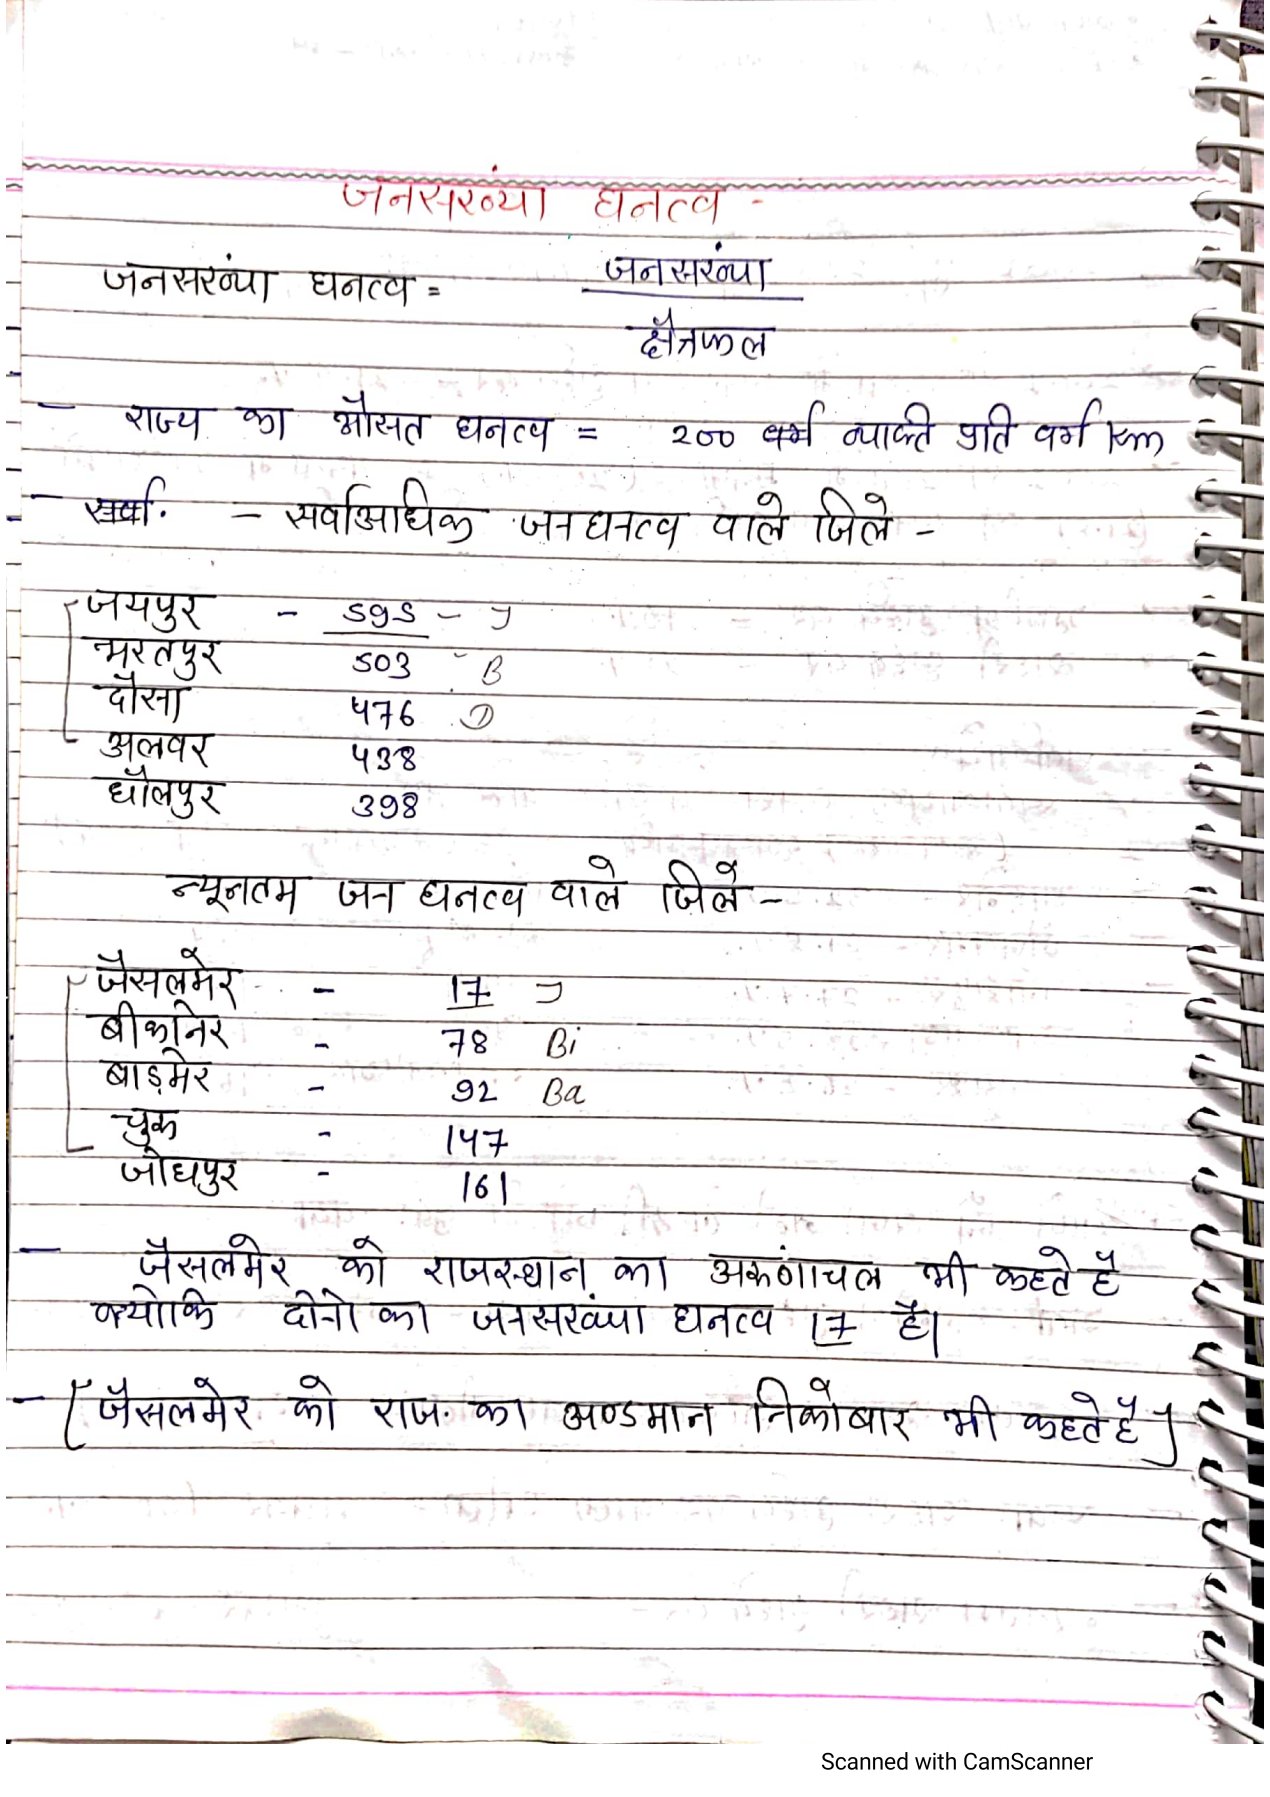 जनसख्ंया घनत्व -
जनसख्ंया घनत्व = जनसख्ंया
क्षैत्रफल
- राज्य का औसत घनत्व = २०० वर्ग व्याक्ति प्रति वर्ग Km
- सर्वा. - सर्वाआधिक जनघनत्व वाले जिले -
जयपुर - 595 - J
भरतपुर 503 - B
दौसा 476 D
अलवर 438
धौलपुर 398
न्यूनतम जन घनत्व वाले जिले -
जैसलमेर - 17 J
बीकानेर - 78 Bi
बाड़मेर - 92 Ba
चुरू - 147
जोधपुर - 161
- जैसलमेर को राजस्थान का अरूणाचल भी कहते है
क्योकि दोनो का जनसख्ंया घनत्व 17 है।
- [जैसलमेर को राज. का अण्डमान निकोबार भी कहते है]
Scanned with CamScanner